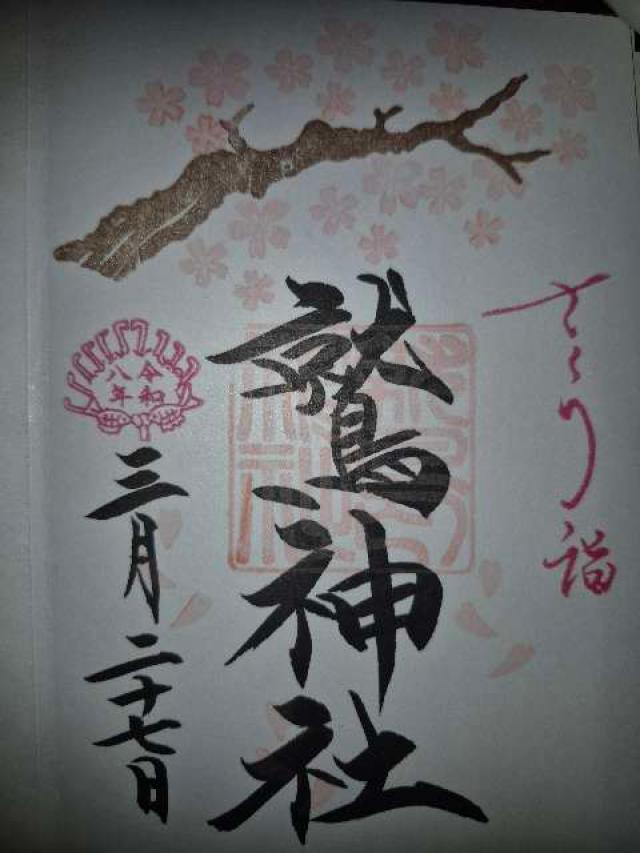 さくら詣
鷲神社
令和
八年
三月二十七日